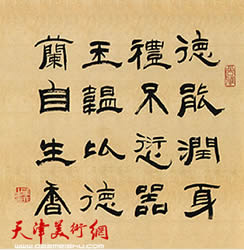 德能潤身
禮不愆器
玉韞以德
蘭自生香
天津美術網